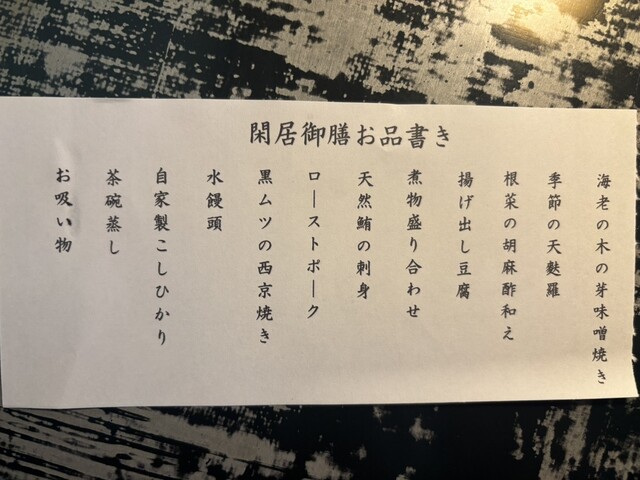 閑居御膳お品書き
海老の木の芽味噌焼き
季節の天麩羅
根菜の胡麻酢和え
揚げ出し豆腐
煮物盛り合わせ
天然鮪の刺身
ローストポーク
黒ムツの西京焼き
水饅頭
自家製こしひかり
茶碗蒸し
お吸い物